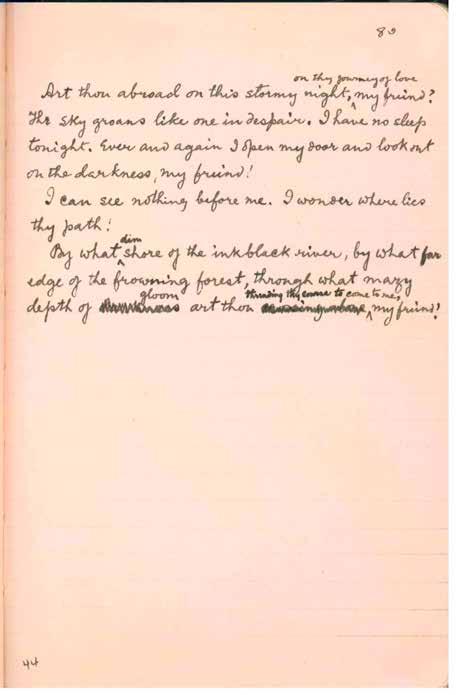 80
on thy journey of love
Art thou abroad on this stormy night, my friend?
The sky groans like one in despair. I have no sleep
tonight. Ever and again I open my door and look out
on the darkness, my friend!
I can see nothing before me. I wonder where lies
thy path!
dim
By what shore of the inkblack river, by what far
edge of the frowning forest, through what mazy
gloom threading thy course to come to me,
depth of art thou my friend?
44